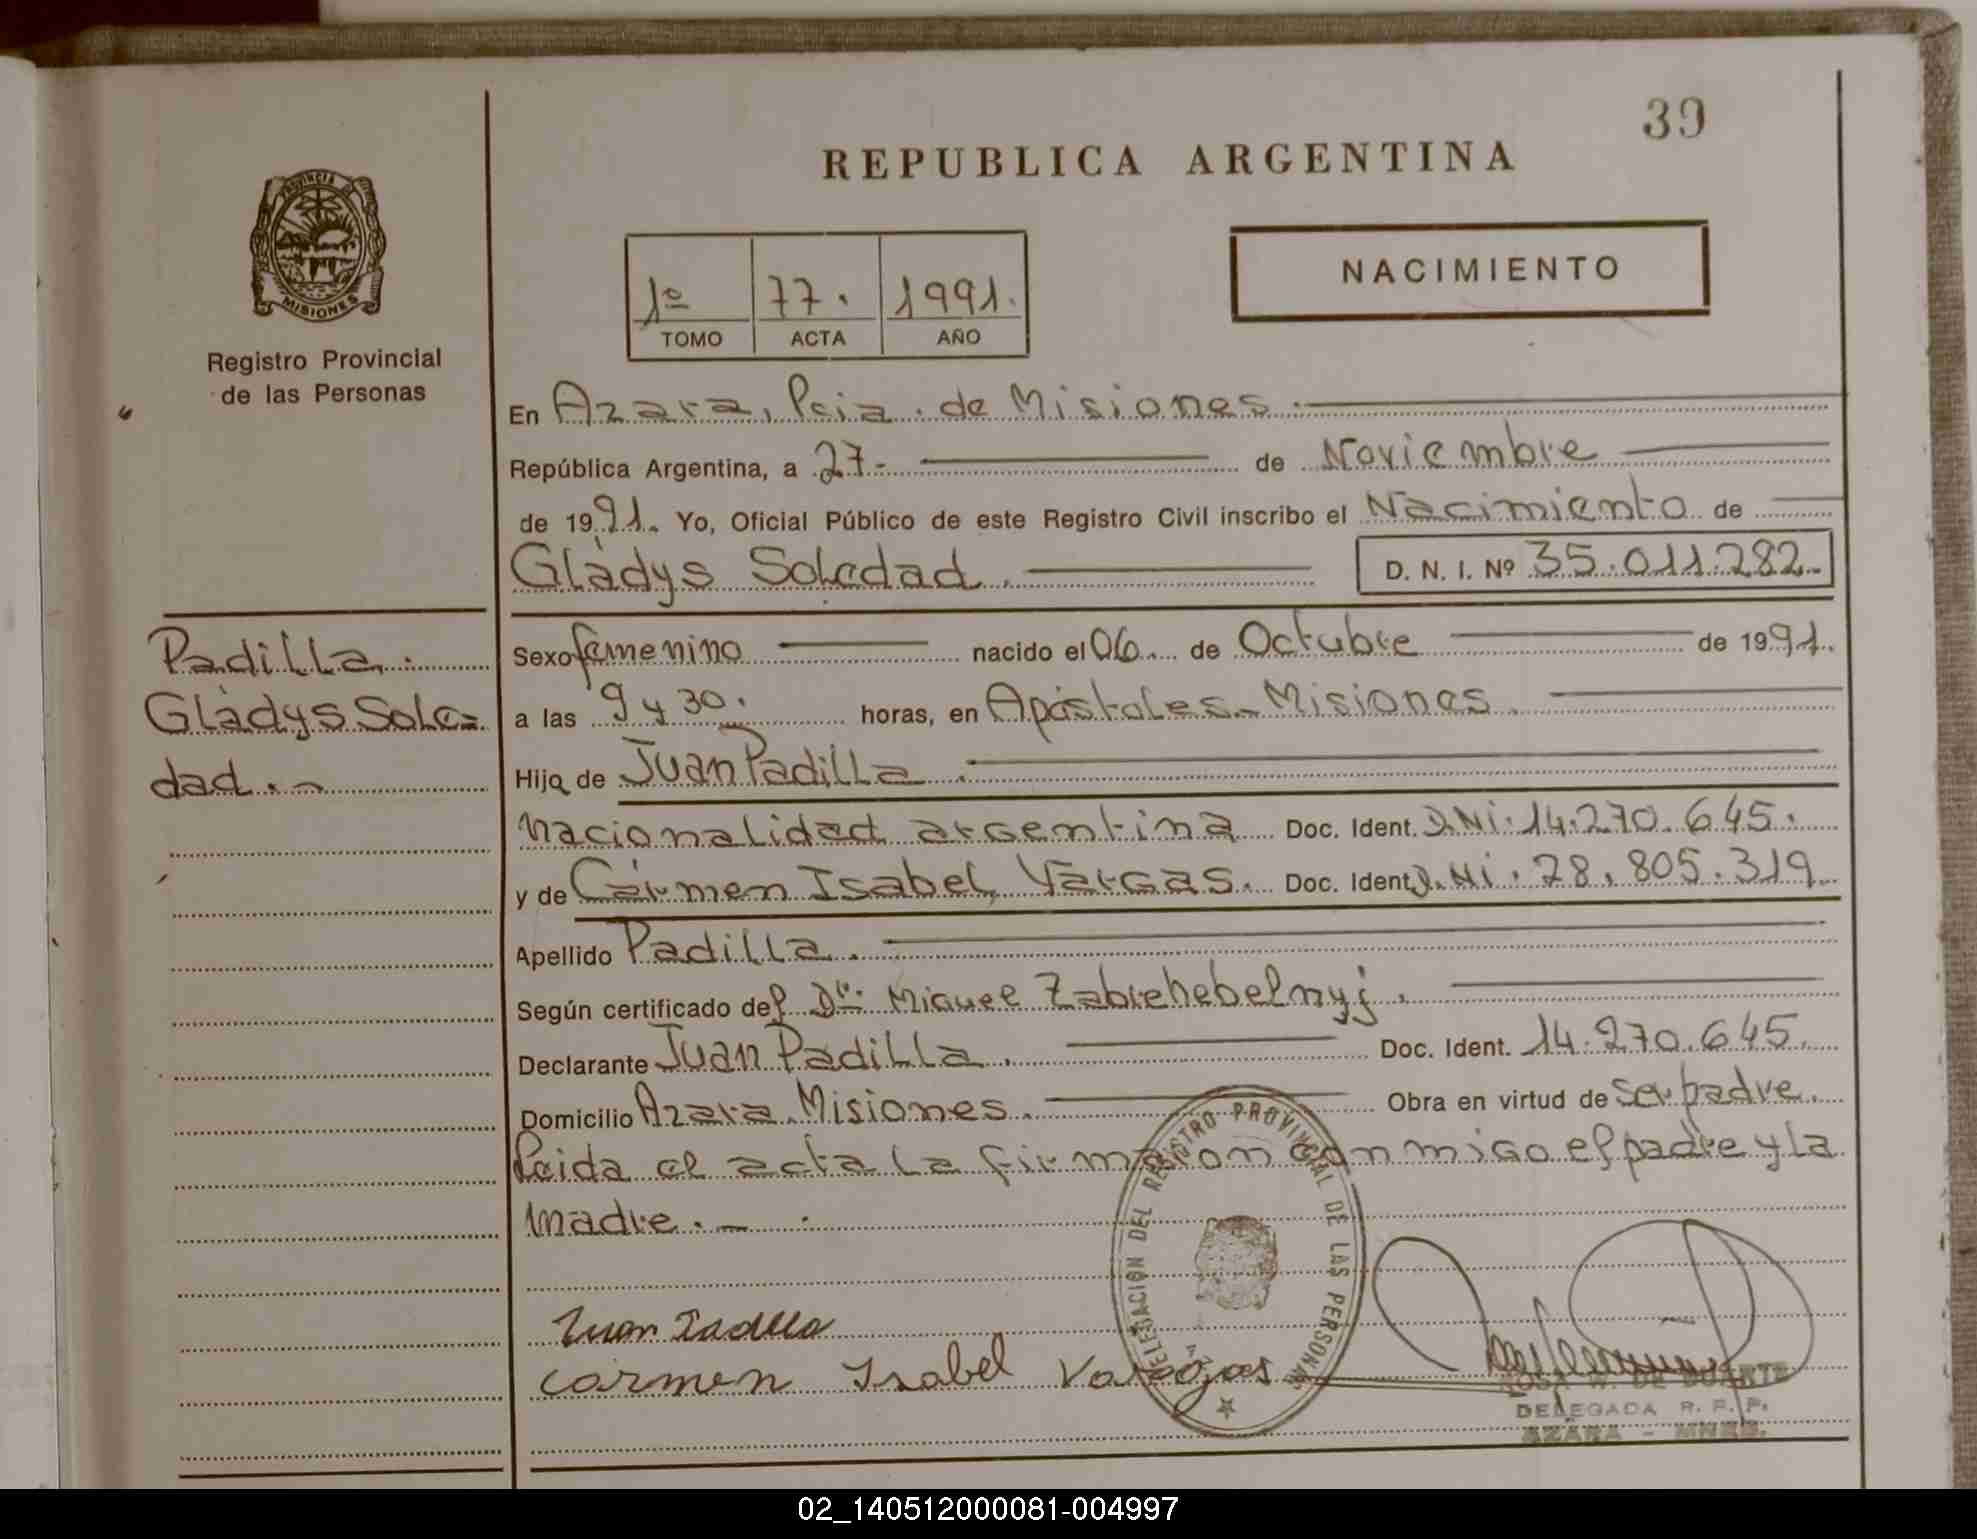 39
REPUBLICA ARGENTINA
PROVINCIA DE
MISIONES
Registro Provincial
de las Personas
1º 77. 1991.
TOMO ACTA AÑO
NACIMIENTO
En Azara, Pcia. de Misiones.
República Argentina, a 27- de Noviembre
de 1991. Yo, Oficial Público de este Registro Civil inscribo el Nacimiento de
Gladys Soledad. D. N. I. Nº 35.011.282.
Padilla.
Gladys Sole=
dad.
Sexo femenino nacido el 06 de Octubre de 1991.
a las 9 y 30. horas, en Apóstoles - Misiones.
Hija de Juan Padilla.
Nacionalidad argentina Doc. Ident. D.Ni. 14.270.645.
y de Cármen Isabel Vargas. Doc. Ident. D.Ni. 28.805.319.
Apellido Padilla.
Según certificado del Dr. Miguel Zabrehebelnyj.
Declarante Juan Padilla. Doc. Ident. 14.270.645.
Domicilio Azara. Misiones. Obra en virtud de ser padre.
Leida el acta la firmaron conmigo el padre y la
madre.
DELEGACION DEL REGISTRO PROVINCIAL DE LAS PERSONAS
Juan Padilla
Carmen Isabel Varegas
ROSA N. DE DUARTE
DELEGADA R. P. P.
AZARA - MNES.
02_140512000081-004997